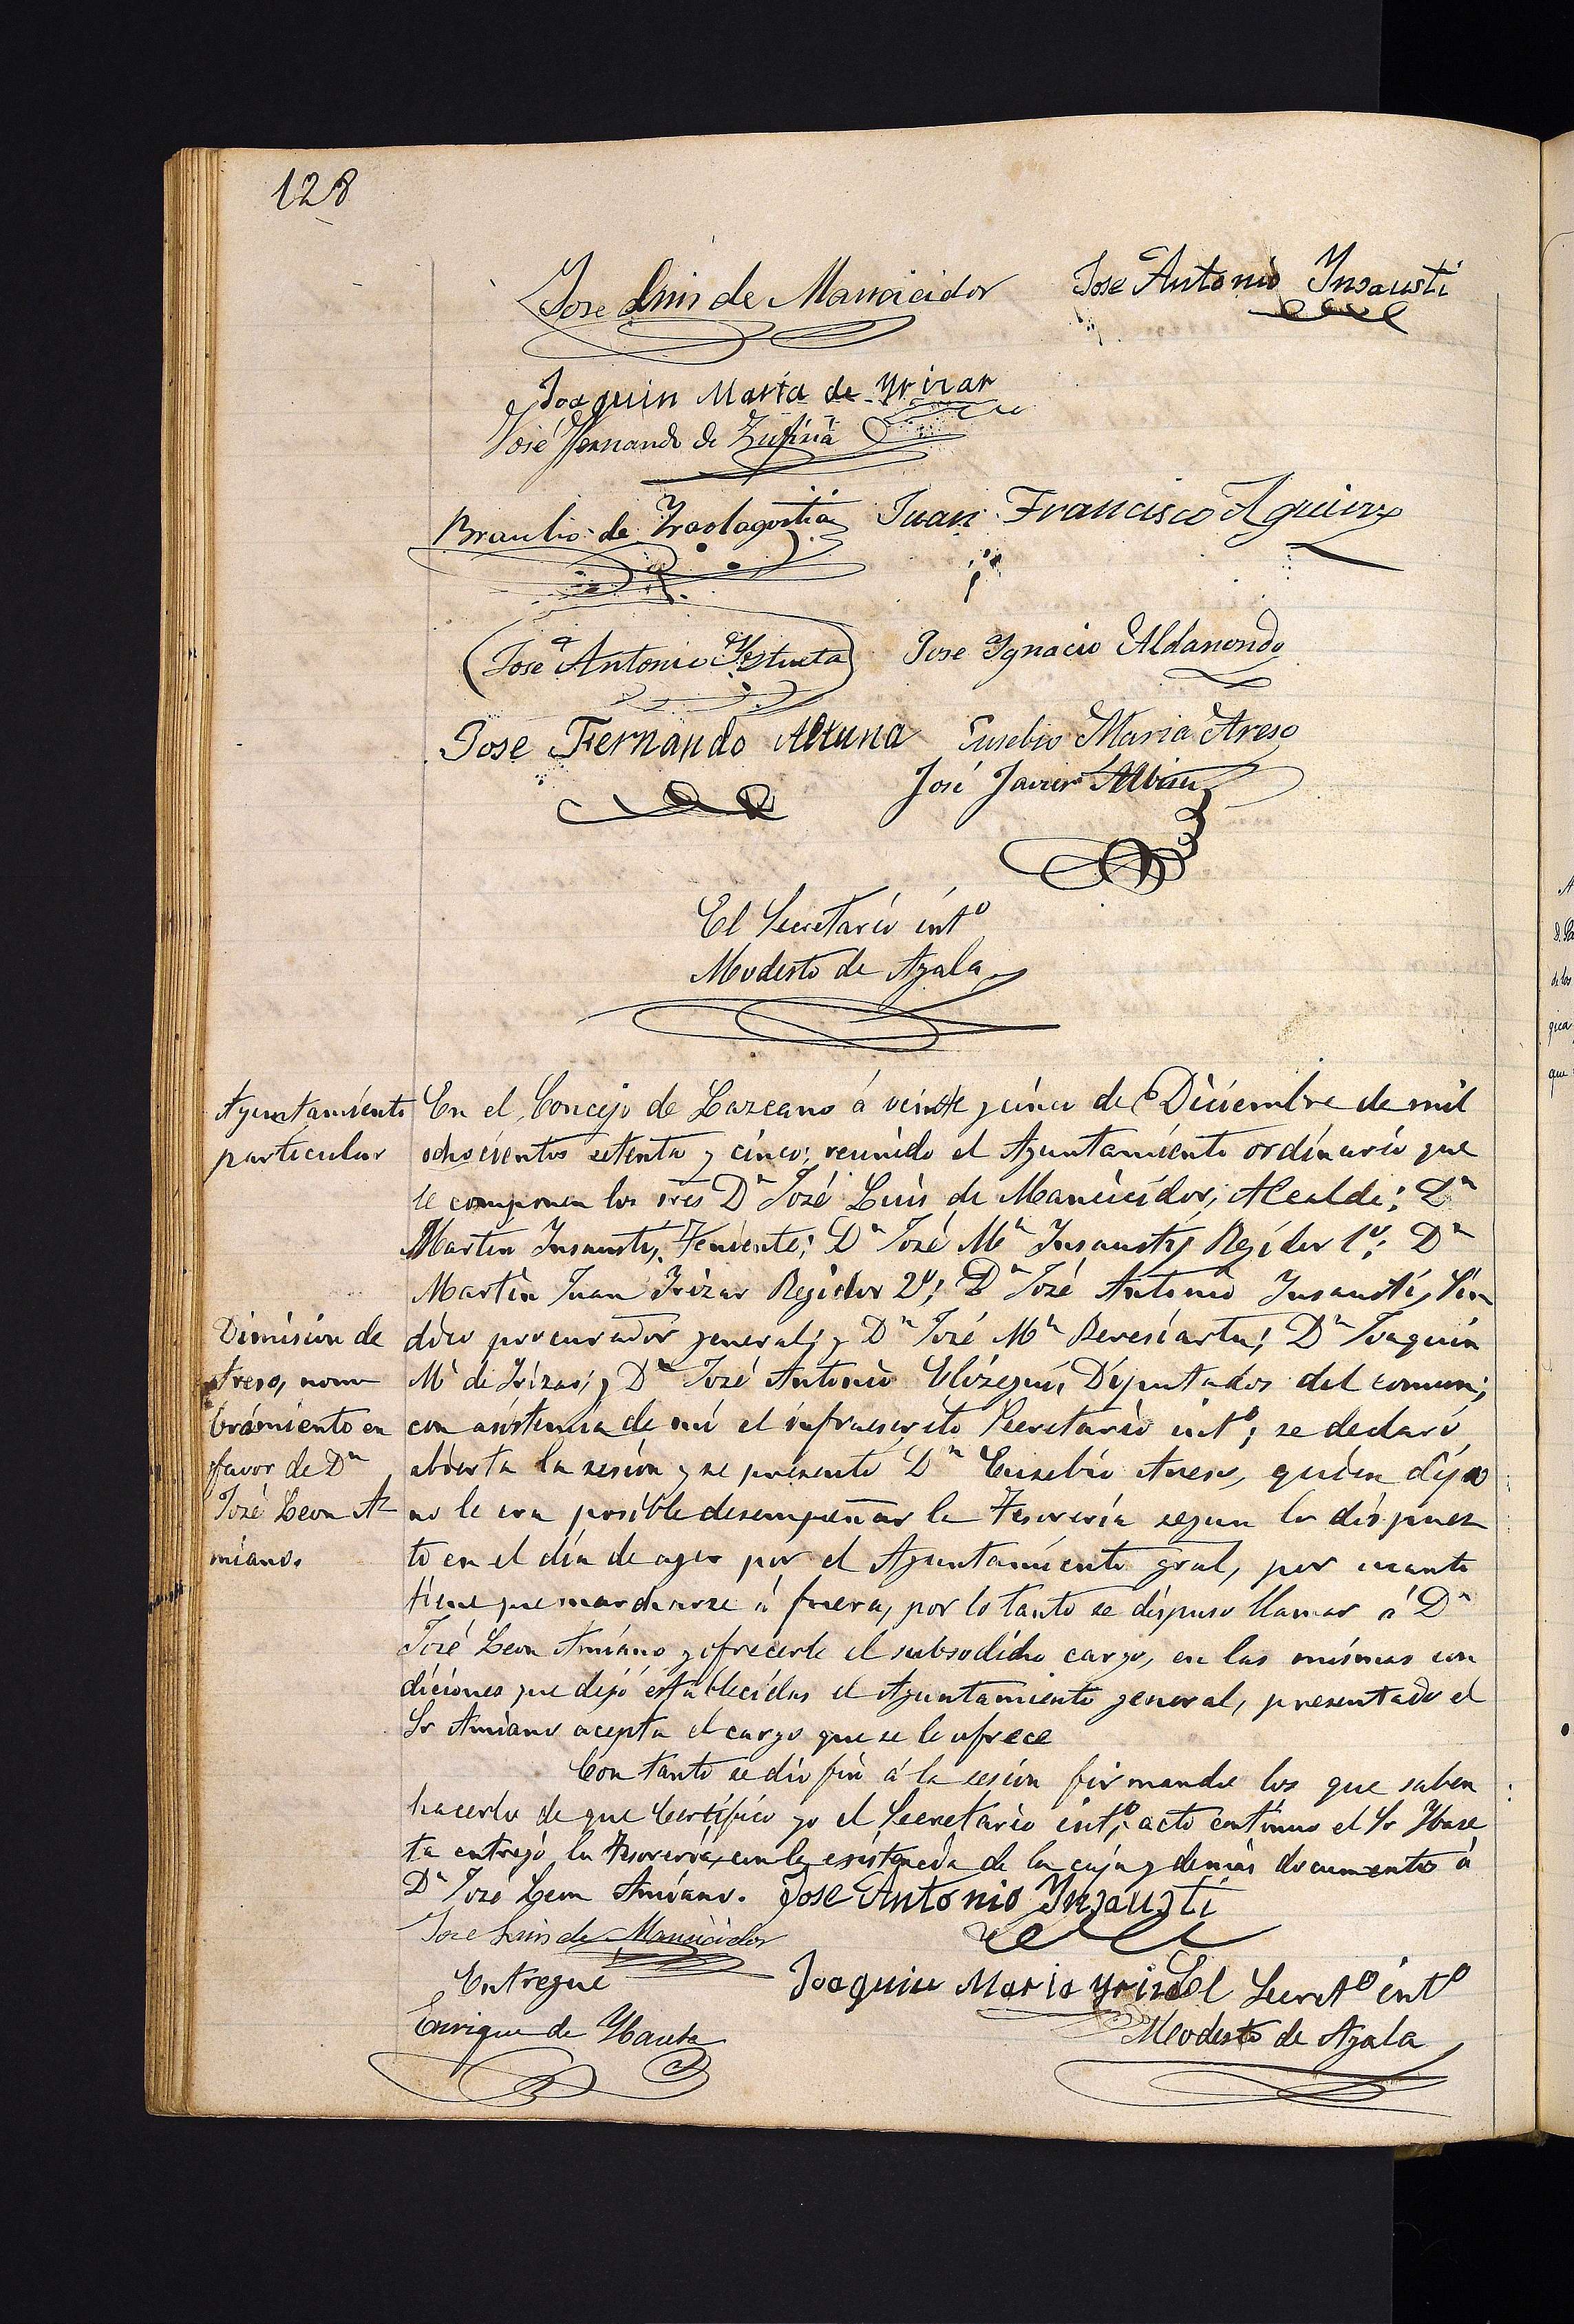 128
Jose Luis de Mancicidor Jose Antonio Insausti
Joaquin Maria de Yrizar
José Fernando de Zufiria
Braulio de Juan Francisco Aguirre
José Antonio Yztueta Jose Ygnacio Aldanondo
Jose Fernando Altuna Eusebio Maria Areso
José Javier Albisu
El Secretario int.º
Modesto de Ayala
Ayuntamiento
particular
En el Concejo de Lazcano á veinte y cinco de Diciembre de mil
ochocientos setenta y cinco; reunido el Ayuntamiento ordinario que
le componen los sres Dn José Luis de Mancicidor, Alcalde; Dn
Martin Insausti, Teniente; Dn José Mª Insausti, Regidor 1º; Dn
Martin Juan Irizar Regidor 2º; Dn José Antonio Insausti, Sin
dico procurador general; y Dn José Mª Beresiartu; Dn Joaquin
Mª de Irizar; y Dn José Antonio Elózegui, Diputados del comun;
con asistencia de mi el infraescrito Secretario intº; se declaró
abierta la sesion y se presentó Dn Eusebio Areso, quien dijo
no le era posible desempeñar la Tesorería segun lo dispues
to en el dia de ayer por el Ayuntamiento gral, por cuanto
tiene que marcharse á fuera, por lo tanto se dispuso llamar á Dn
José Leon Amiano y ofrecerle el subsodicho cargo, en las mismas con
diciones que dejó establecidas el Ayuntamiento general, presentado el
Sr Amiano acepta el cargo que se le ofrece
Dimision de
Areso, nom
bramiento en
favor de Dn
José Leon A
miano.
Con tanto se dió fin á la sesion firmando los que saben
hacerlo de que Certifico yo el Secretario intº; acto continuo el Sr Ybase
ta entregó la Tesorería, con la esistencia de la caja y demás documentos á
Dn José Leon Amiano. Jose Antonio Insausti
Jose Luis de Mancicidor
Entregué
Joaquin Maria Yrizar El Secretº intº
Enrique de Modesto de Ayala